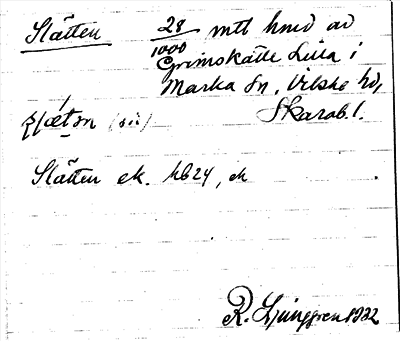 Slätten 28/1000 mtl hmd av
Grimskälle Lilla i
Marka sn, Vilske hd,
Skarab. l.
(sic)
Slätten ek. hb 24, ek
R. Ljunggren 1922